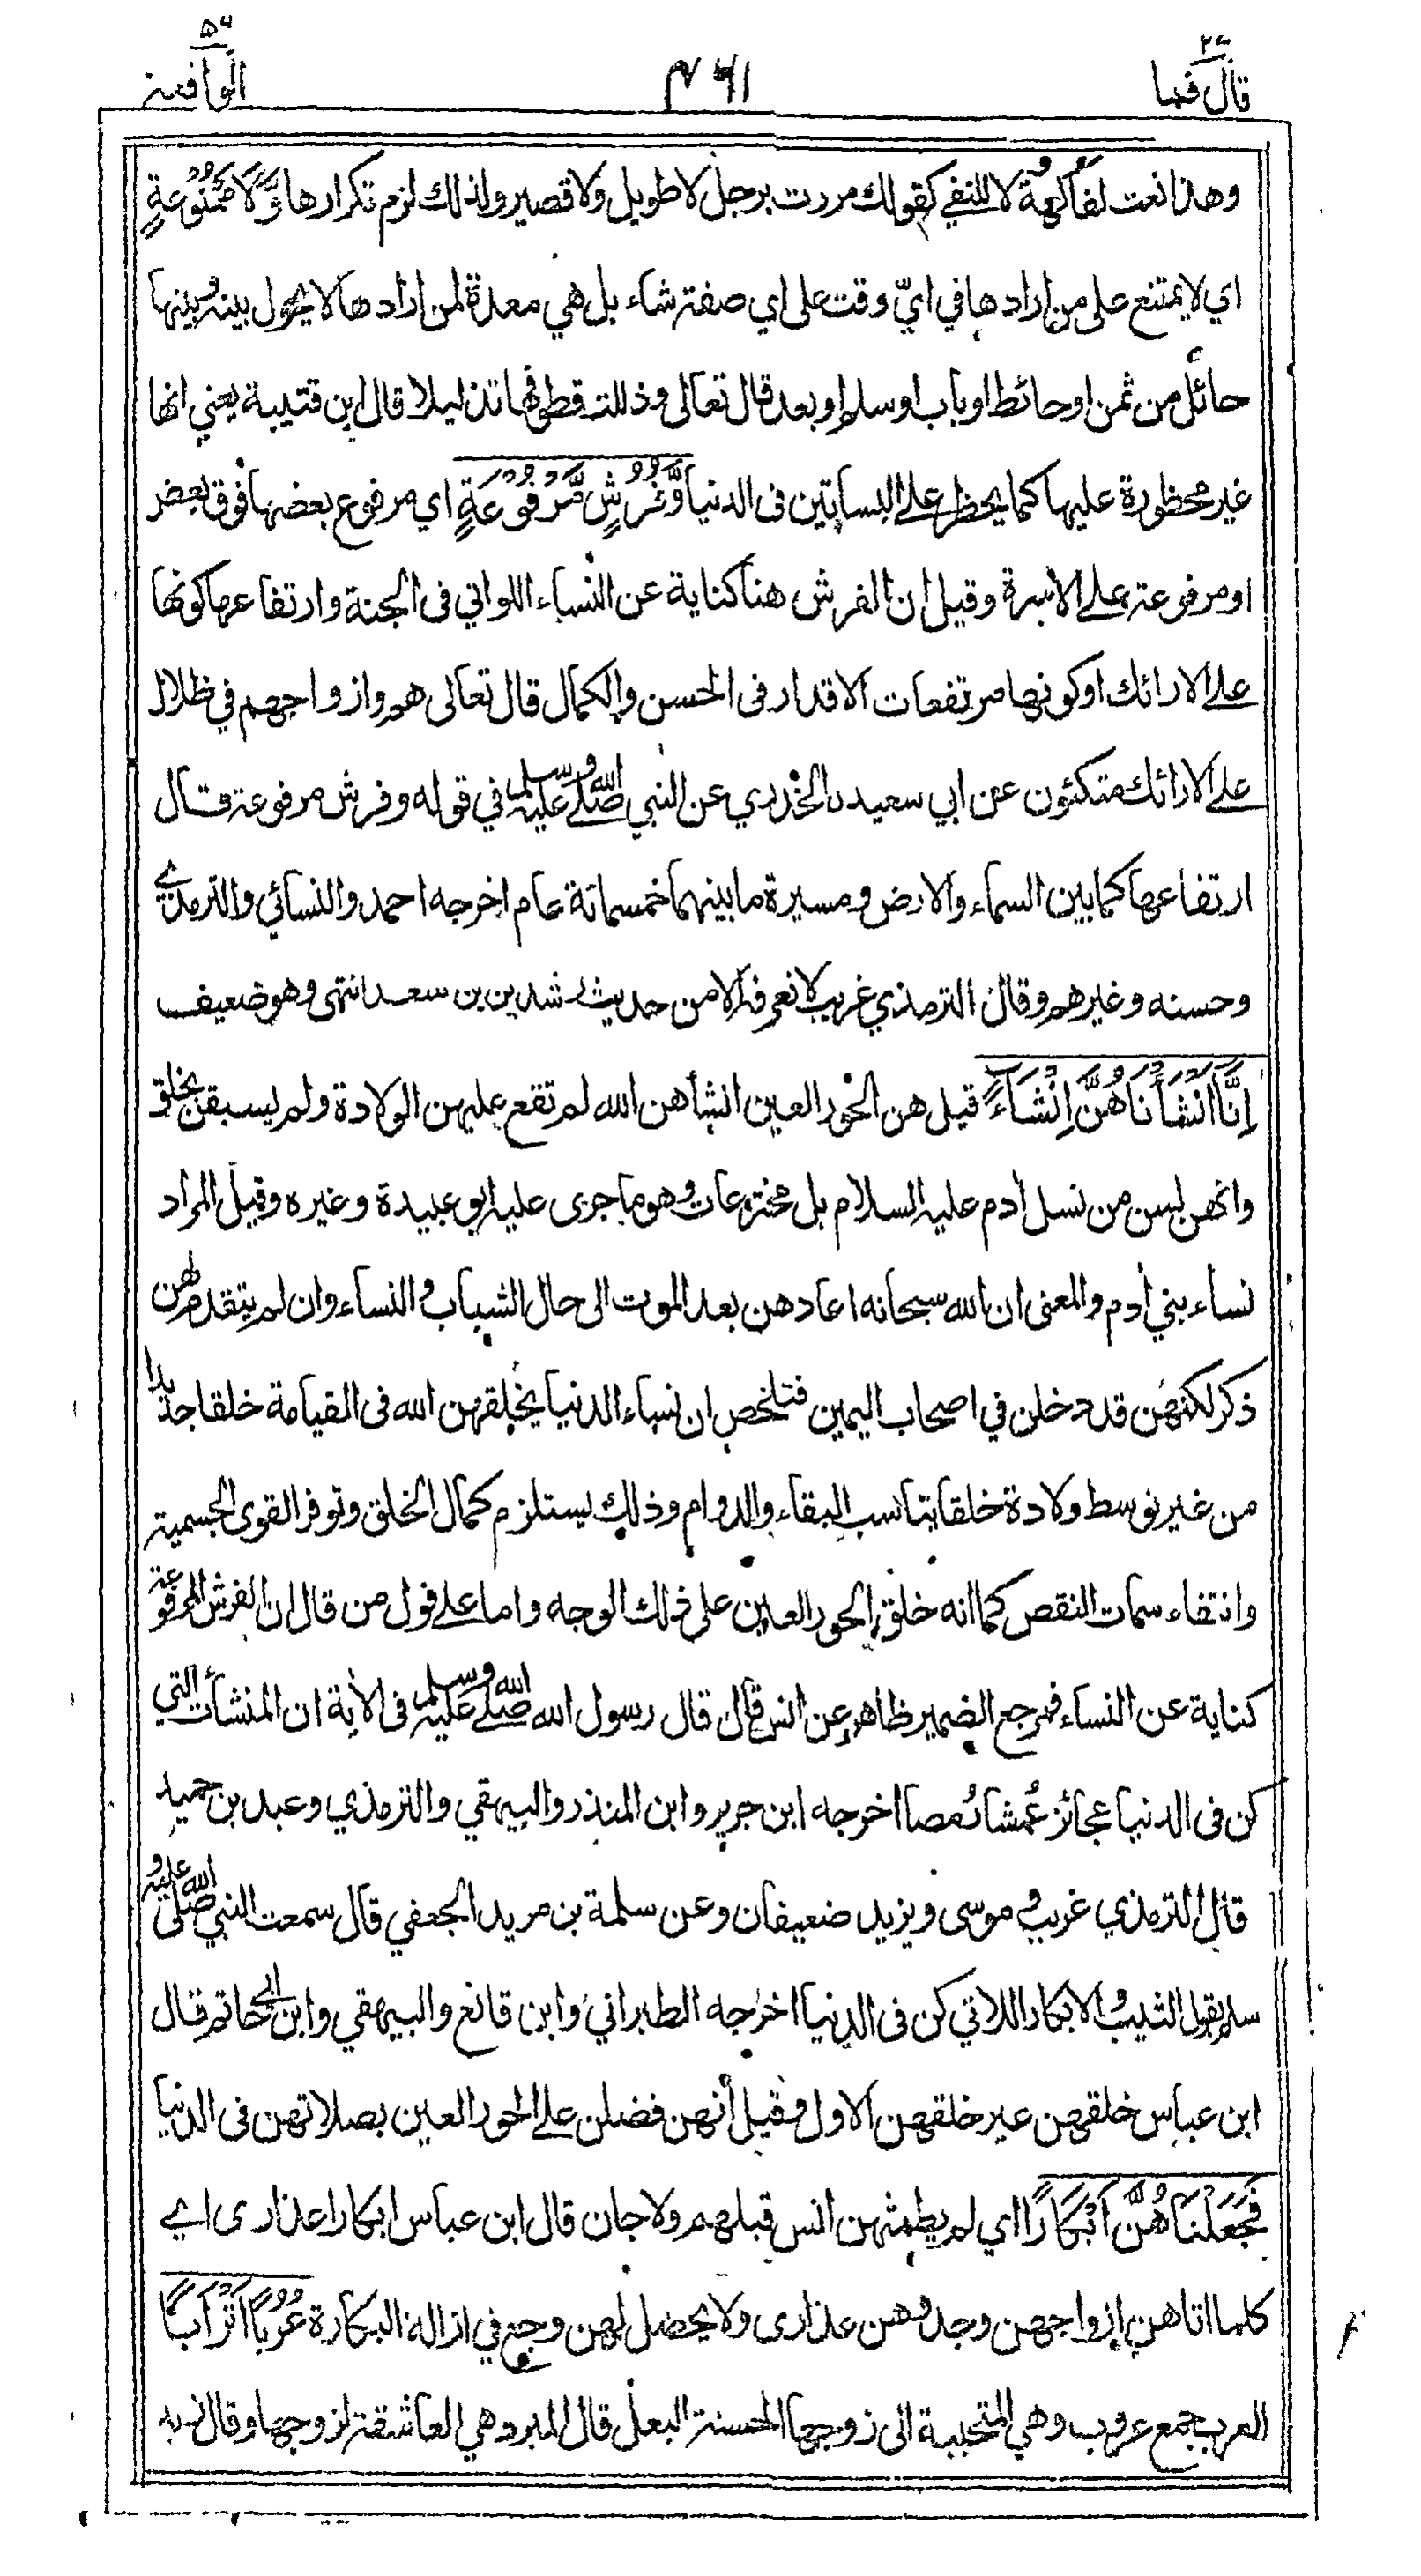 قال فما ٢٧
٤٦١
الواقعة ٥٦
وهذا نعت لفاكهة لا للنفي كقولك مررت برجل لا طويل ولا قصير ولذلك لزم تكرارها وَّلَا مَمْنُوْعَةٍ
اي لا يمتنع على من ارادها في ايّ وقت على اي صفة شاء بل هي معدة لمن ارادها لا يحول بينه وبينها
حائل من ثمن او حائط او باب او سلم او بعد قال تعالى وذللت قطوفها تذليلا قال ابن قتيبة يعني انها
غير محظورة عليها كما يحظر على البساتين فى الدنيا وَّفُرُشٍ مَّرْفُوْعَةٍ اي مرفوع بعضها فوق بعض
او مرفوعة على الاسرة وقيل ان الفرش هنا كناية عن النساء اللواتي فى الجنة وارتفاعها كونها
على الارائك او كونها مرتفعات الاقدار فى الحسن والكمال قال تعالى هم وازواجهم في ظلال
على الارائك متكئون عن ابي سعيد الخدري عن النبي صلى الله عليه وسلم في قوله وفرش مرفوعة قال
ارتفاعها كما بين السماء والارض ومسيرة ما بينهما خمسمائة عام اخرجه احمد والنسائي والترمذي
وحسنه وغيرهم وقال الترمذي غريب لا نعرفه الا من حديث رشدين بن سعد انتهى وهو ضعيف
اِنَّا اَنْشَأْنَاهُنَّ اِنْشَاءً قيل هن الحور العين انشأهن الله لم تقع عليهن الولادة ولم يسبقن بخلق
وانهن ليسن من نسل أدم عليه السلام بل مخترعات وهو ما جرى عليه ابو عبيدة وغيره وقيل المراد
نساء بني أدم والمعنى ان الله سبحانه اعادهن بعد الموت الى حال الشباب والنساء وان لم يتقدم لهن
ذكر لكنهن قد دخلن في اصحاب اليمين فتلخص ان نساء الدنيا يخلقهن الله فى القيامة خلقا جديدا
من غير توسط ولادة خلقا يناسب البقاء والدوام وذلك يستلزم كمال الخلق وتوفر القوى الجسمية
وانتفاء سمات النقص كما انه خلق الحور العين على ذلك الوجه واما على قول من قال ان الفرش المرفوعة
كناية عن النساء فمرجع الضمير ظاهر عن انس قال قال رسول الله صلى الله عليه وسلم فى الأية ان المنشأت التي
كن فى الدنيا عجائز عُمشا رُمصا اخرجه ابن جرير وابن المنذر والبيهقي والترمذي وعبد بن حميد
قال الترمذي غريب وموسى ويزيد ضعيفان وعن سلمة بن مريد الجعفي قال سمعت النبي صلى الله عليه و
سلم يقول الثيب والابكار اللاتي كن فى الدنيا اخرجه الطبراني وابن قانع والبيهقي وابن ابي حاتم قال
ابن عباس خلقهن غير خلقهن الاول وقيل أنهن فضلن على الحور العين بصلاتهن فى الدنيا
فَجَعَلْنَاهُنَّ اَبْكَارًا اي لم يطمثهن انس قبلهم ولا جان قال ابن عباس ابكارا عذارى اي
كلما اتاهن ازواجهن وجدوهن عذارى ولا يحصل لهن وجع في ازالة البكارة عُرُبًا اَتْرَابًا
العرب جمع عروب وهي المتحببة الى زوجها الحسنة البعل قال المبرد هي العاشقة لزوجها وقال